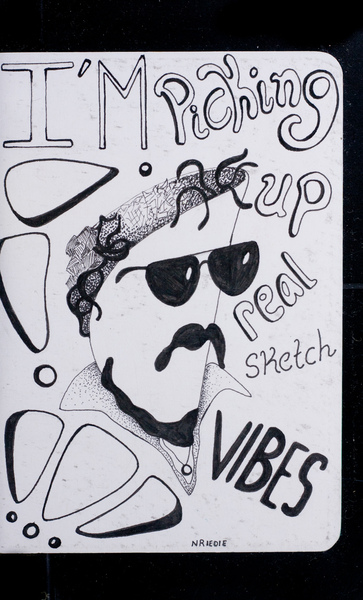 I'M Picking
up
real
sketch
VIBES
NRIEDIE